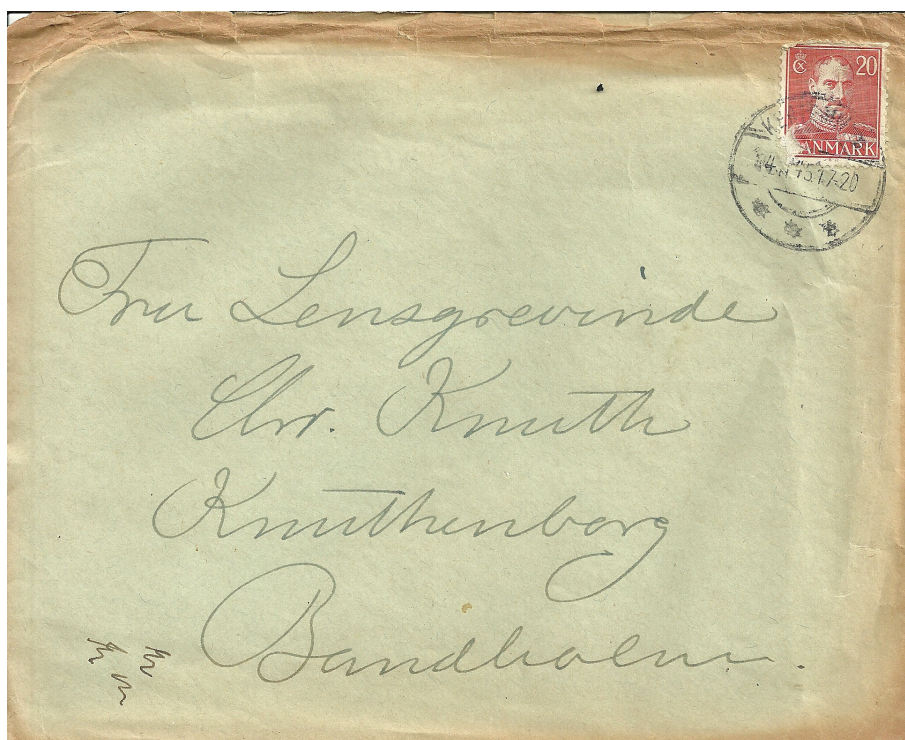 20
DANMARK
17-20
Fru Lensgrevinde
Chr. Knuth
Knuthenborg
Bandholm.